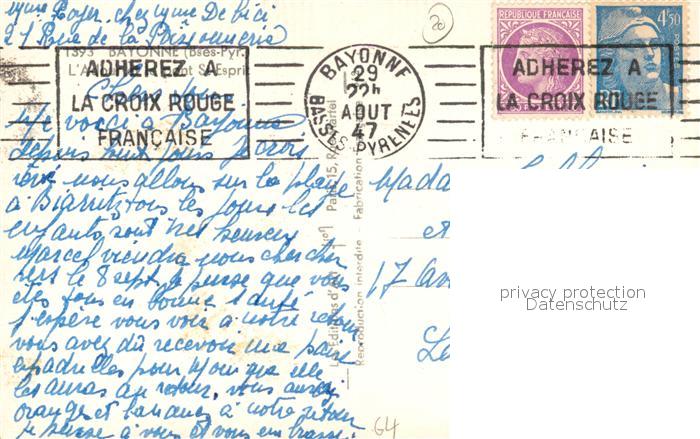 Mme Royer chez Mme De bici
21 Rue de la Poissonnerie
1393 BAYONNE (Bses-Pyr.)
L'A nt St-Esprit
ADHEREZ A
LA CROIX ROUGE
FRANÇAISE
BAYONNE
29
22h
AOUT
47
BASSES PYRENEES
REPUBLIQUE FRANÇAISE
4F50
POSTES
ADHEREZ A
LA CROIX ROUGE
FRANÇAISE
20
Me voici à Bayonne
depuis huit jours je crois
nous allons sur la plage
à Biarritz tous les jours les
enfants sont très heureux
Marcel viendra nous chercher
vers le 8 sept. je pense que vous
êtes tous en bonne santé
j'espère vous voir à notre retour
vous avez dû recevoir une paire
espadrilles pour Monique elle
les aura au retour. vous aurez
oranges et bananes à notre retour
je pense à vous et vous embrasse
Mada
et
17 av
Le
Les Editions d'Art
Paris, 15, Rue Martel
Reproduction interdite - Fabrication
privacy protection
Datenschutz
64